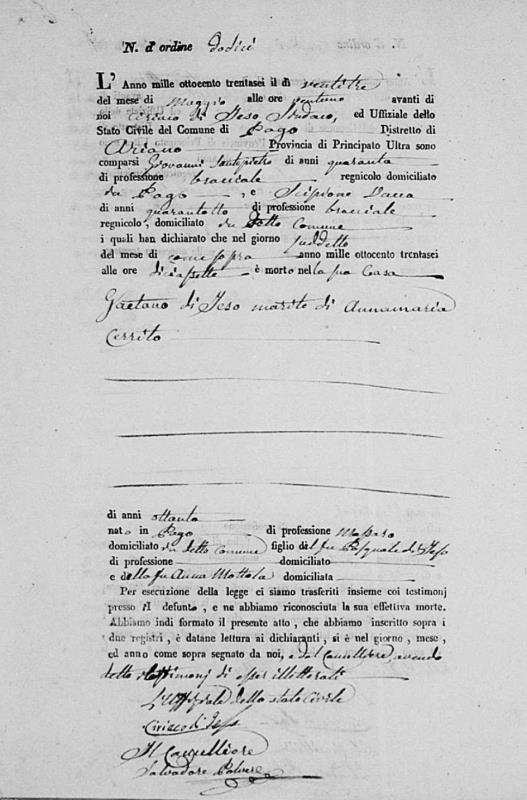 N. d'ordine dodici
L' Anno mille ottocento trentasei il dì ventitre
del mese di Maggio alle ore ventuno avanti di
noi Ciriaco di Ieso Sindaco, ed Uffiziale dello
Stato Civile del Comune di Pago Distretto di
Ariano Provincia di Principato Ultra sono
comparsi Giovanni Santopietro di anni quaranta
di professione bracciale regnicolo domiciliato
in Pago, e Scipione Vacca
di anni quarantotto di professione bracciale
regnicolo, domiciliato in detto Comune
i quali han dichiarato che nel giorno suddetto
del mese di come sopra anno mille ottocento trentasei
alle ore diciassette è morto nella sua Casa
Gaetano di Ieso marito di Annamaria
Cerrito
di anni ottanta
nato in Pago di professione Massaro
domiciliato in detto Comune figlio del fu Pasquale di Ieso
di professione domiciliato
e della fu Anna Mottola domiciliata
Per esecuzione della legge ci siamo trasferiti insieme coi testimonj
presso il defunto, e ne abbiamo riconosciuta la sua effettiva morte.
Abbiamo indi formato il presente atto, che abbiamo inscritto sopra i
due registri, è datane lettura ai dichiaranti, si è nel giorno, mese,
ed anno come sopra segnato da noi, e dal Cancelliere avendo
detto i testimonj di esser illetterati
L'Uffiziale dello stato civile
Ciriaco di Ieso
Il Cancelliere
Salvadore Polvere